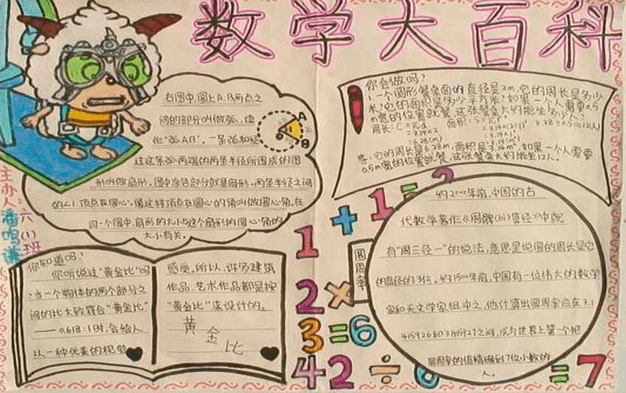 数学大百科
主办人：六(1)班
右图中,圆上A、B两点之
间的部分叫做弧,读
作“弧AB”,一条弧和经
过这条弧两端的两条半径所围成的图
形叫做扇形。图中涂色部分就是扇形。两条半径之间
的∠1,顶点在圆心。像这样顶点在圆心的角叫做圆心角。在
同一个圆中,扇形的大小与这个扇形的圆心角的
大小有关。
A
B
你会做吗?
1.一个圆形餐桌面的直径是2m,它的周长是多少
米?它的面积是多少平方米?如果一个人需要0.5
m宽的位置就餐,这张餐桌大约能坐多少人?
答:它的周长是6.28m,面积是3.14m²,如果一个人需要
0.5m宽的位置就餐,这张餐桌大约能坐12人。
1+1=2
2×
3=6
42÷6=7
圆周率
约2000年前,中国的古
代数学著作《周髀算经》中就
有“周三径一”的说法,意思是说圆的周长是它
的直径的3倍。约1500年前,中国有一位伟大的数学
家和天文学家祖冲之,他计算出圆周率应在3.1
415926和3.1415927之间,成为世界上第一个把
圆周率的值精确到7位小数的
人。
你知道吗?
你听说过“黄金比”吗
?当一个物体的两个部分之
间的比大致符合“黄金比”
——0.618:1时,会给人
以一种优美的视觉
感受。所以,许多建筑
作品、艺术作品都是按
“黄金比”来设计的。
黄金比